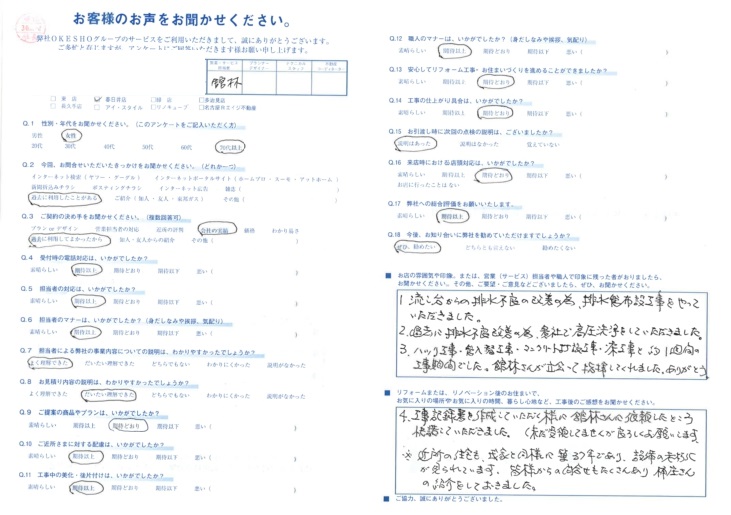 お客様のお声をお聞かせください。
弊社OKESHOグループのサービスをご利用いただきまして、誠にありがとうございます。
ご多忙と存じますが、アンケートにご回答いただきます様お願い申し上げます。
舘林
Q.1 性別・年代をお聞かせください。(このアンケートをご記入いただく方)
男性 女性
20代 30代 40代 50代 60代 70代以上
Q.2 今回、お問合せいただいたきっかけをお聞かせください。(どれか一つ)
インターネット検索(ヤフー・グーグル) インターネットポータルサイト(ホームプロ・スーモ・アットホーム)
新聞折込みチラシ ポスティングチラシ インターネット広告 雑誌( )
過去に利用したことがある ご紹介(知人・友人・東邦ガス) その他( )
Q.3 ご契約の決め手をお聞かせください。(複数回答可)
プランorデザイン 営業担当者の対応 近所の評判 会社の実績 価格 わかり易さ
過去に利用してよかったから 知人・友人からの紹介 その他( )
Q.4 受付時の電話対応は、いかがでしたか?
素晴らしい 期待以上 期待どおり 期待以下 悪い( )
Q.5 担当者の対応は、いかがでしたか?
素晴らしい 期待以上 期待どおり 期待以下 悪い( )
Q.6 担当者のマナーは、いかがでしたか?(身だしなみや挨拶、気配り)
素晴らしい 期待以上 期待どおり 期待以下 悪い( )
Q.7 担当者による弊社の事業内容についての説明は、わかりやすかったでしょうか?
よく理解できた だいたい理解できた どちらでもない わかりにくかった 説明がなかった
Q.8 お見積り内容の説明は、わかりやすかったでしょうか?
よく理解できた だいたい理解できた どちらでもない わかりにくかった 説明がなかった
Q.9 ご提案の商品やプランは、いかがでしたか?
素晴らしい 期待以上 期待どおり 期待以下 悪い( )
Q.10 ご近所さまに対する配慮は、いかがでしたか?
素晴らしい 期待以上 期待どおり 期待以下 悪い( )
Q.11 工事中の美化・後片付けは、いかがでしたか?
素晴らしい 期待以上 期待どおり 期待以下 悪い( )
Q.12 職人のマナーは、いかがでしたか?(身だしなみや挨拶、気配り)
素晴らしい 期待以上 期待どおり 期待以下 悪い( )
Q.13 安心してリフォーム工事・お住まいづくりを進めることができましたか?
素晴らしい 期待以上 期待どおり 期待以下 悪い( )
Q.14 工事の仕上がり具合は、いかがでしたか?
素晴らしい 期待以上 期待どおり 期待以下 悪い( )
Q.15 お引渡し時に次回の点検の説明は、ございましたか?
説明はあった 説明はなかった 覚えていない
Q.16 来店時における店頭対応は、いかがでしたか?
素晴らしい 期待以上 期待どおり 期待以下 悪い( )
お店に行ったことはない
Q.17 弊社への総合評価をお願いいたします。
素晴らしい 期待以上 期待どおり 期待以下 悪い( )
Q.18 今後、お知り合いに弊社を勧めていただけますでしょうか?
ぜひ、勧めたい どちらとも言えない 勧めたくない
■ お店の雰囲気や印象、または、営業(サービス)担当者や職人で印象に残った者がおりましたら、
お聞かせください。その他、ご要望・ご意見などございましたら、ぜひ、お聞かせください。
1. 流し台からの排水不良の改善の為、排水管布設工事をやって
いただきました。
2. 過去に排水不良改善の為、貴社で高圧洗浄をしていただきました。
3. ハツリ工事・管入替工事・コンクリート打設工事・床工事と約1週間の
工事期間でした。舘林さんが立会って指揮してくれました。ありがとう。
■ リフォームまたは、リノベーション後のお住まいで、
お気に入りの場所やお気に入りの時間、暮らし心地など、工事後のご感想をお聞かせください。
4. 工事記録書を作成していただく様に舘林さんに依頼したところ
快諾していただきました。(未だ受領してませんが宜ろしくお願いします)
※ 近所の住宅も、我家と同様に築30年であり、設備の老朽化
が見られています。皆様からの問合せもたくさんあり
の紹介をしておきました。
■ ご協力、誠にありがとうございました。